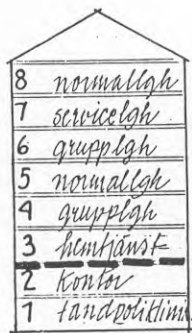 8 normallgh
7 servicelgh
6 grupplgh
5 normallgh
4 grupplgh
3 hemtjänst
2 kontor
1 tandpoliklinik